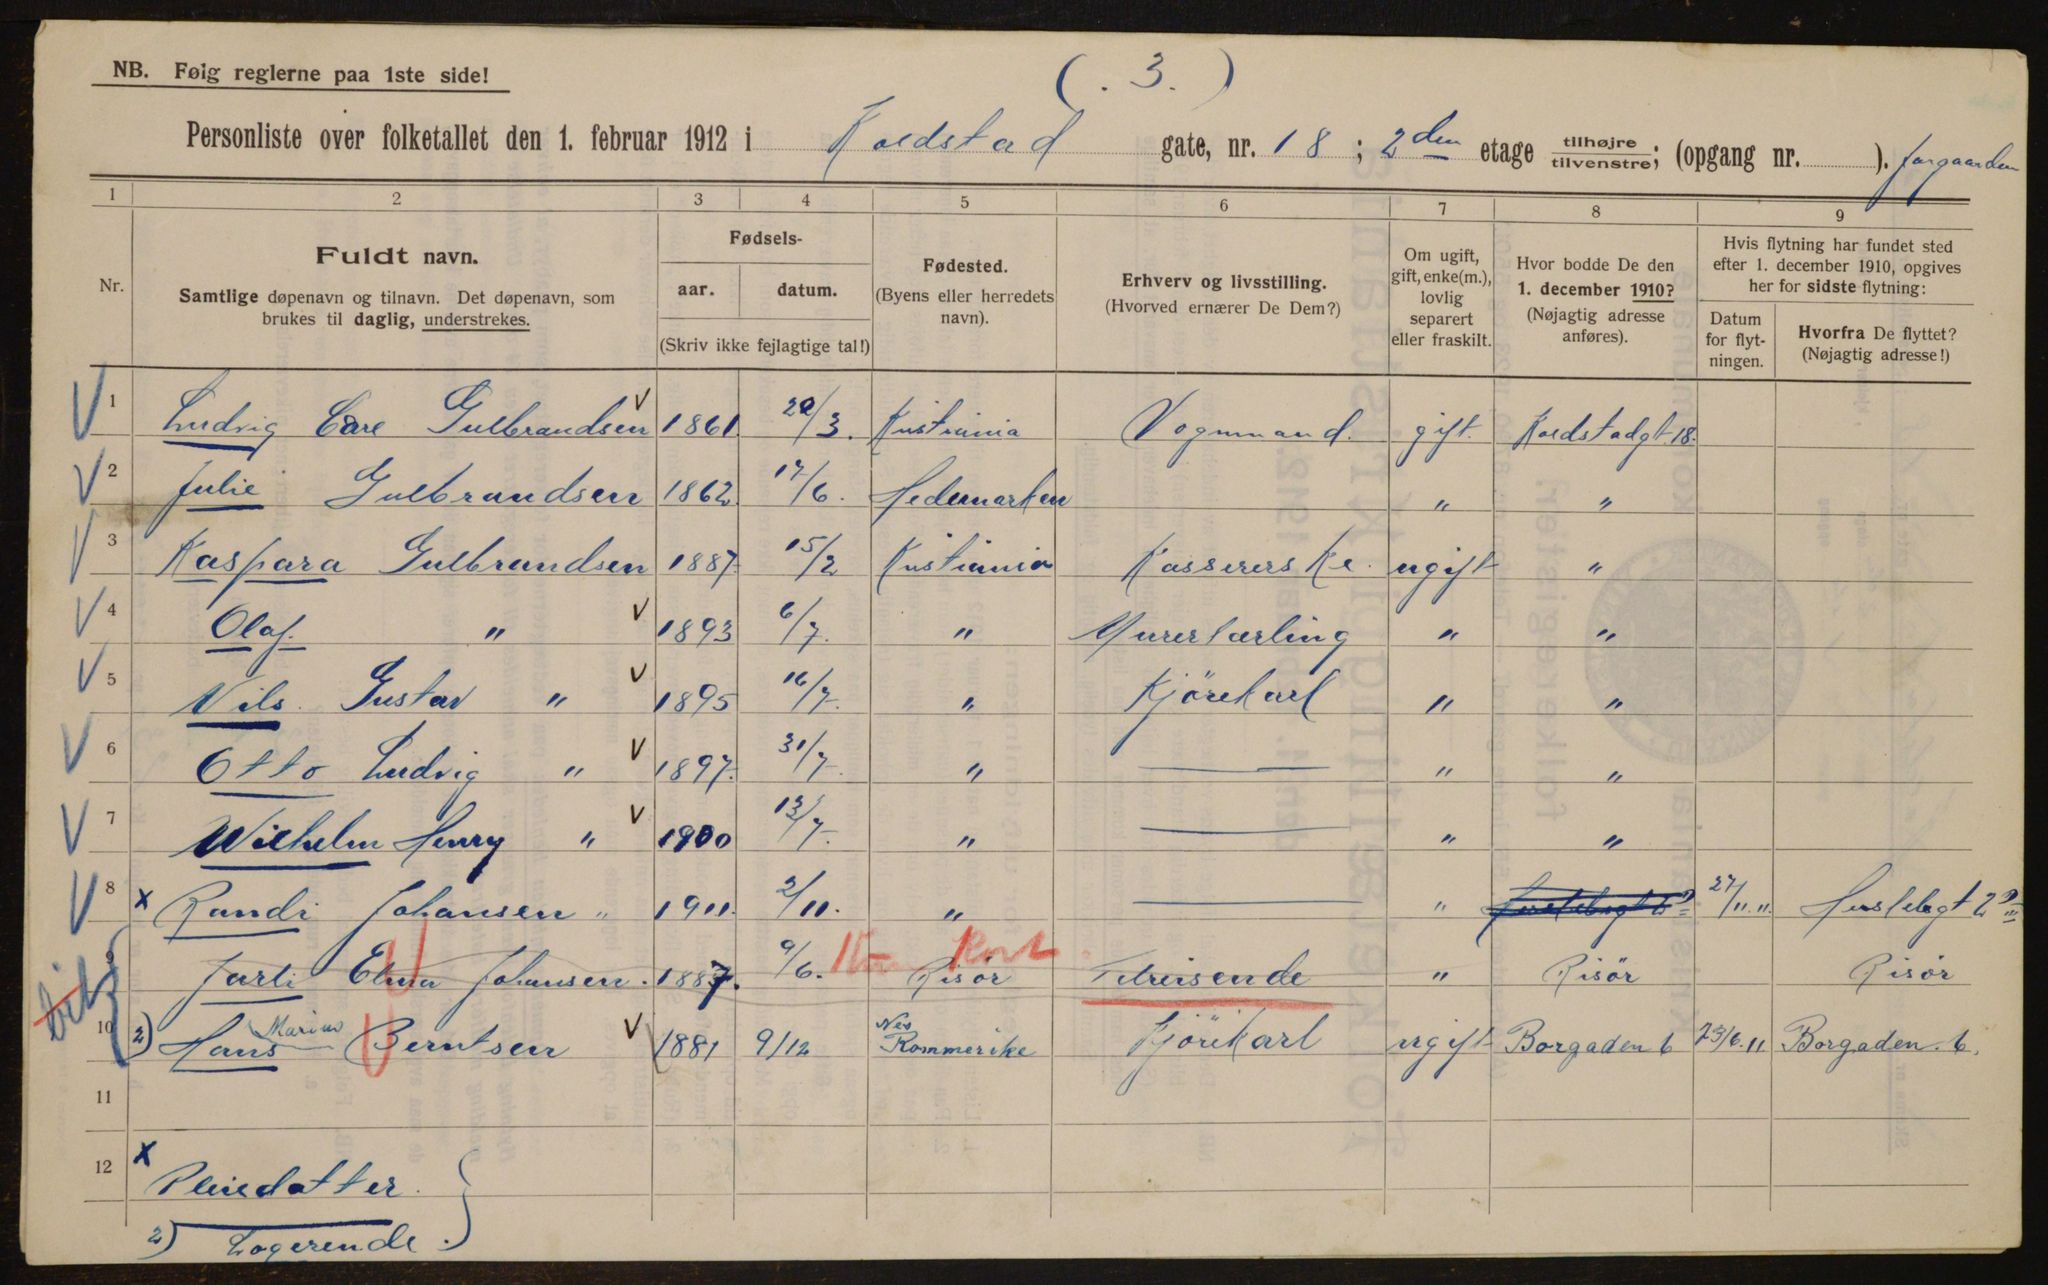 ( . 3. )
NB. Følg reglerne paa 1ste side!
Personliste over folketallet den 1. februar 1912 i Koldstad gate, nr. 18 ; 2den etage tilhøjre tilvenstre; (opgang nr. ). forgaarden
1 2 3 4 5 6 7 8 9
Nr.
Fuldt navn.
Samtlige døpenavn og tilnavn. Det døpenavn, som
brukes til daglig, understrekes.
Fødsels-
aar. datum.
(Skriv ikke fejlagtige tal!)
Fødested.
(Byens eller herredets
navn).
Erhverv og livsstilling.
(Hvorved ernærer De Dem?)
Om ugift,
gift, enke(m.),
lovlig
separert
eller fraskilt.
Hvor bodde De den
1. december 1910?
(Nøjagtig adresse
anføres).
Hvis flytning har fundet sted
efter 1. december 1910, opgives
her for sidste flytning:
Datum
for flyt-
ningen.
Hvorfra De flyttet?
(Nøjagtig adresse!)
V 1 Ludvig Carl Gulbrandsen V 1861 /3. Kristiania Vognmand. gift. Koldstadgt 18.
V 2 Julie Gulbrandsen 1862. 17/6. Hedemarken " "
V 3 Kaspara Gulbrandsen 1887. 15/2 Kristiania Kassererske. ugift "
V 4 Olaf. " V 1893 6/7. " Murerlærling " "
V 5 Nils. Gustav " V 1895 16/7. " Kjörekarl " "
V 6 Otto Ludvig " V 1897. 31/7. " — " "
V 7 Wilhelm Henry " V 1900 13/7. " — " "
V 8 x Randi Johansen " 1911. 2/11. " — " 27/11.11. 2
9 Jarli Elna Johansen. 1887. 9/6. Kun Kort. Risör Tilreisende " Risör Risör
10 2) Hans Marius Berntsen V 1881 9/12 Nes Rommerike Kjörekarl ugift Borgaden 6 23/6.11 Borgaden. 6.
11
12 x Pleiedatter.
2) Logerende.